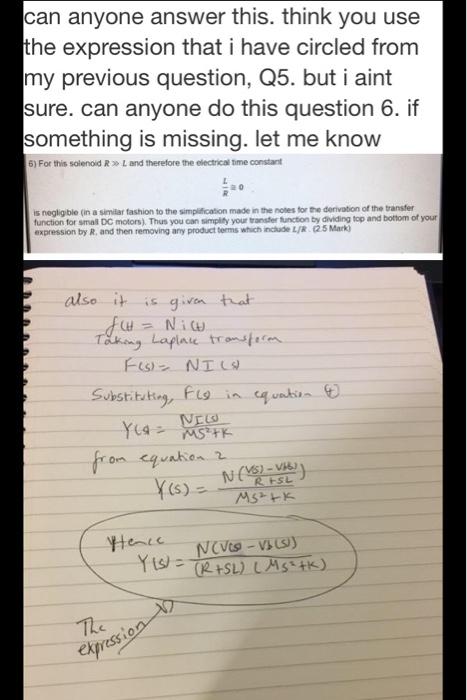 can anyone answer this. think you use
the expression that i have circled from
my previous question, Q5. but i aint
sure. can anyone do this question 6. if
something is missing. let me know
6) For this solenoid R ≫ L and therefore the electrical time constant
L/R ≅ 0
is negligible (in a similar fashion to the simplification made in the notes for the derivation of the transfer
function for small DC motors). Thus you can simplify your transfer function by dividing top and bottom of your
expression by R, and then removing any product terms which include L/R. (2.5 Mark)
also it is given that
f(t) = Ni(t)
Taking Laplace transform
F(s) = NI(s)
Substituting, F(s) in equation 4
Y(s) = NI(s) / MS²+K
from equation 2
Y(s) = N(V(s) - Vb(s) / R+SL) / MS²+K
Hence
Y(s) = N(V(s) - Vb(s)) / (R+SL) (MS²+K)
The
expression